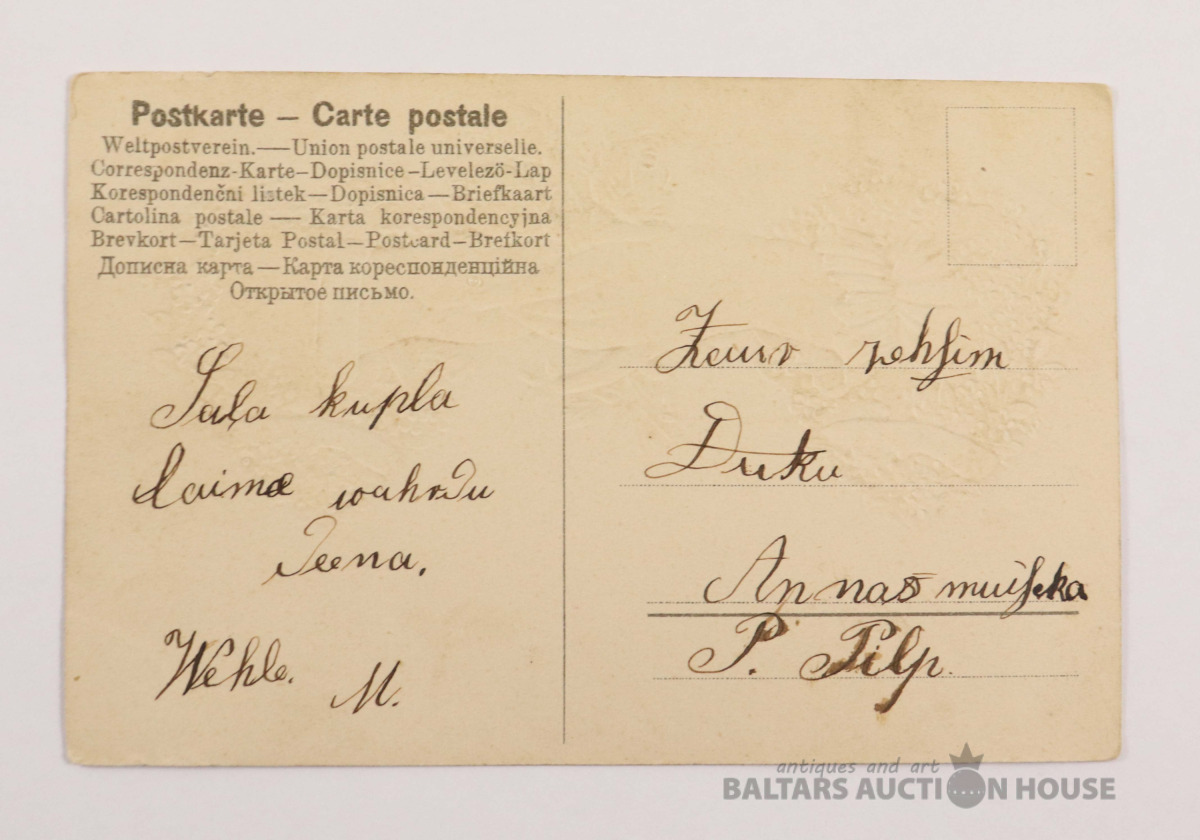 Postkarte – Carte postale
Weltpostverein.—Union postale universelle.
Correspondenz-Karte–Dopisnice–Levelezö-Lap
Korespondenční listek—Dopisnica—Briefkaart
Cartolina postale — Karta korespondencyjna
Brevkort—Tarjeta Postal—Postcard—Brefkort
Дописна карта—Карта кореспонденційна
Открытое письмо.
kupla
laime wahrdu
deena.
Wehle. M.
Duku
Annas muischka
P. Pilp.
antiques and art
BALTARS AUCTION HOUSE